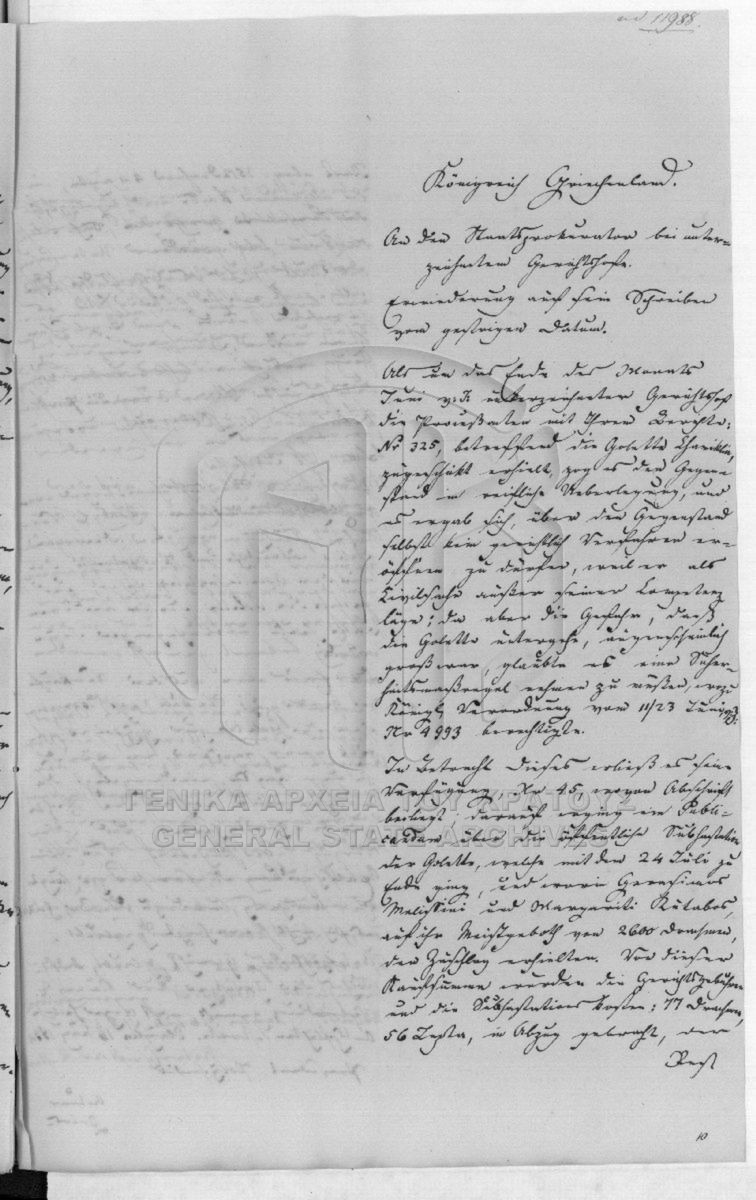 ad 11988.
Königreich Griechenland.
An den Staatsprokurator bei unter-
zeichnetem Gerichtshofe.
Erwiederung auf sein Schreiben
vom gestrigen Datum.
Als um das Ende des Monats
Juni v. J. unterzeichneter Gerichtshof
die Prozeßakten mit Ihrem Berichte:
Nr 325, betreffend die Golette Chariklia,
zugeschickt erhielt, zog es den Gegen-
stand in reifliche Ueberlegung, und
es ergab sich, über den Gegenstand
selbst kein gerichtlich Verfahren er-
öffnen zu dürfen, weil er als
Civilsache außer seiner Competenz
läge; da aber die Gefahr, daß
die Golette untergehe, augenscheinlich
groß war, glaubte es eine Sicher-
heitsmaßregel nehmen zu müßen, wozu
Königl. Verordnung vom 11/23 Juni
Nr 4993 berechtigte.
In Betracht dieses erließ es seine
Verfügung Nr 45, wovon Abschrift
beiliegt; darauf erging ein Publi-
candum über die öffentliche Subhastation
der Golette, welche mit dem 24 Juli zu
Ende ging, und worin Gerasimos
Melissini und Margariti Kutabos,
auf ihr Meistgeboth von 2600 Drachmen,
den Zuschlag erhielten. Von dieser
Kaufsumme wurden die Gerichtsgebühren
und die Subhastations Kosten: 77 Drachmen,
56 Lepta, in Abzug gebracht, der
Rest
10
ΓΕΝΙΚΑ ΑΡΧΕΙΑ ΤΟΥ ΚΡΑΤΟΥΣ
GENERAL STATE ARCHIVES